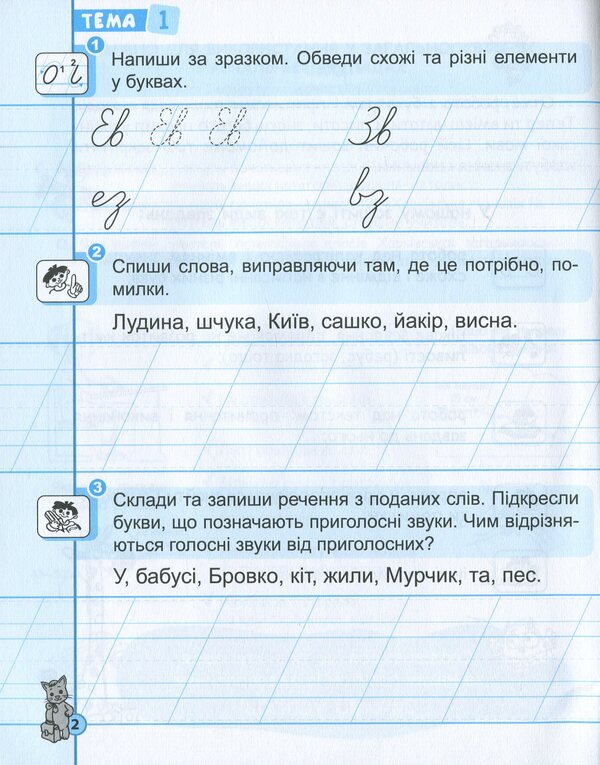 ТЕМА 1
1
О¹ г²
Напиши за зразком. Обведи схожі та різні елементи
у буквах.
Ев Ев Ев Зв
ез вз
2
Спиши слова, виправляючи там, де це потрібно, по-
милки.
Лудина, шчука, Київ, сашко, йакір, висна.
3
Склади та запиши речення з поданих слів. Підкресли
букви, що позначають приголосні звуки. Чим відрізня-
ються голосні звуки від приголосних?
У, бабусі, Бровко, кіт, жили, Мурчик, та, пес.
2